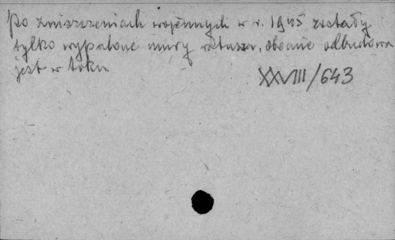 Po zniszczeniach wojennych w r. 1945 zostały
tylko wypalone mury ratusza, obecnie odbudowa
jest w toku
XXVIII/643